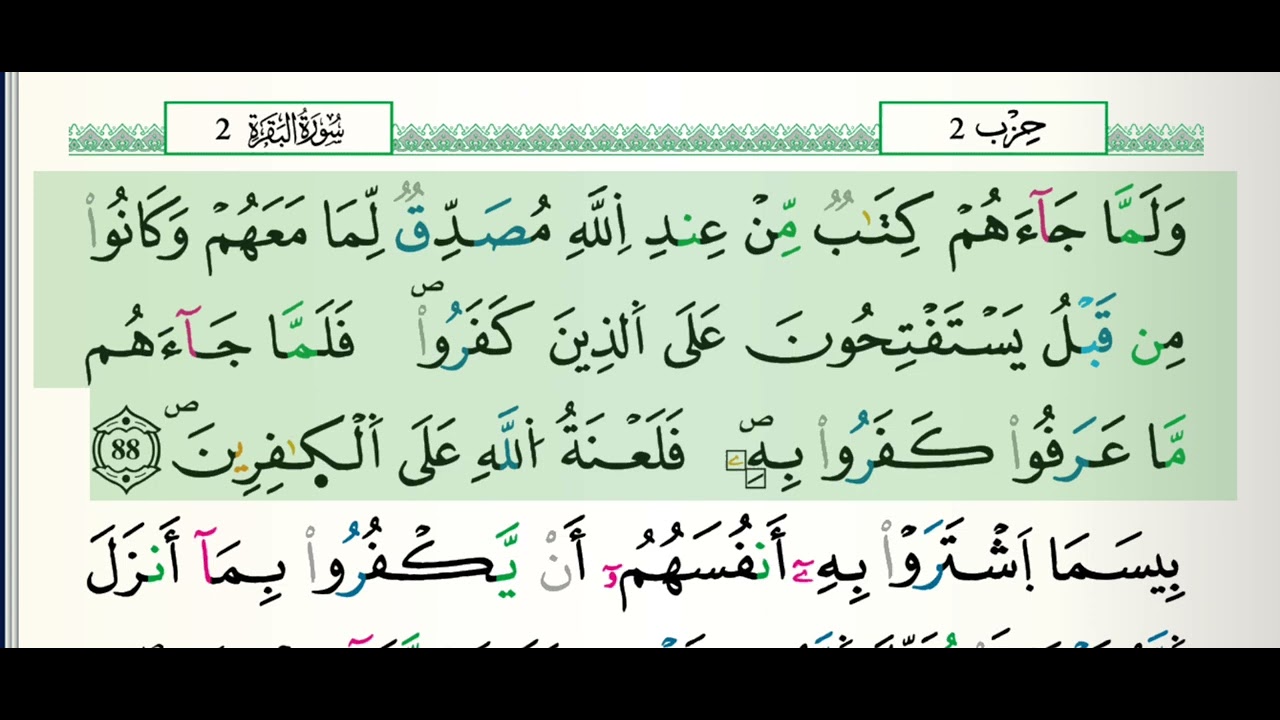 حِزْب 2
سُورَةُ الْبَقَرَةِ 2
وَلَمَّا جَآءَهُمْ كِتَٰبٌ مِّنْ عِندِ اِ۬للَّهِ مُصَدِّقٌ لِّمَا مَعَهُمْ وَكَانُواْ
مِن قَبْلُ يَسْتَفْتِحُونَ عَلَى اَ۬لذِينَ كَفَرُواْۖ فَلَمَّا جَآءَهُم
مَّا عَرَفُواْ كَفَرُواْ بِهِۦۖ فَلَعْنَةُ اُ۬للَّهِ عَلَى اَ۬لْكٰ۪فِرِينَۖ 88
بِيسَمَا اَ۪شْتَرَوْاْ بِهِۦٓ أَنفُسَهُمُۥٓ أَنْ يَّكْفُرُواْ بِمَآ أَنزَلَ